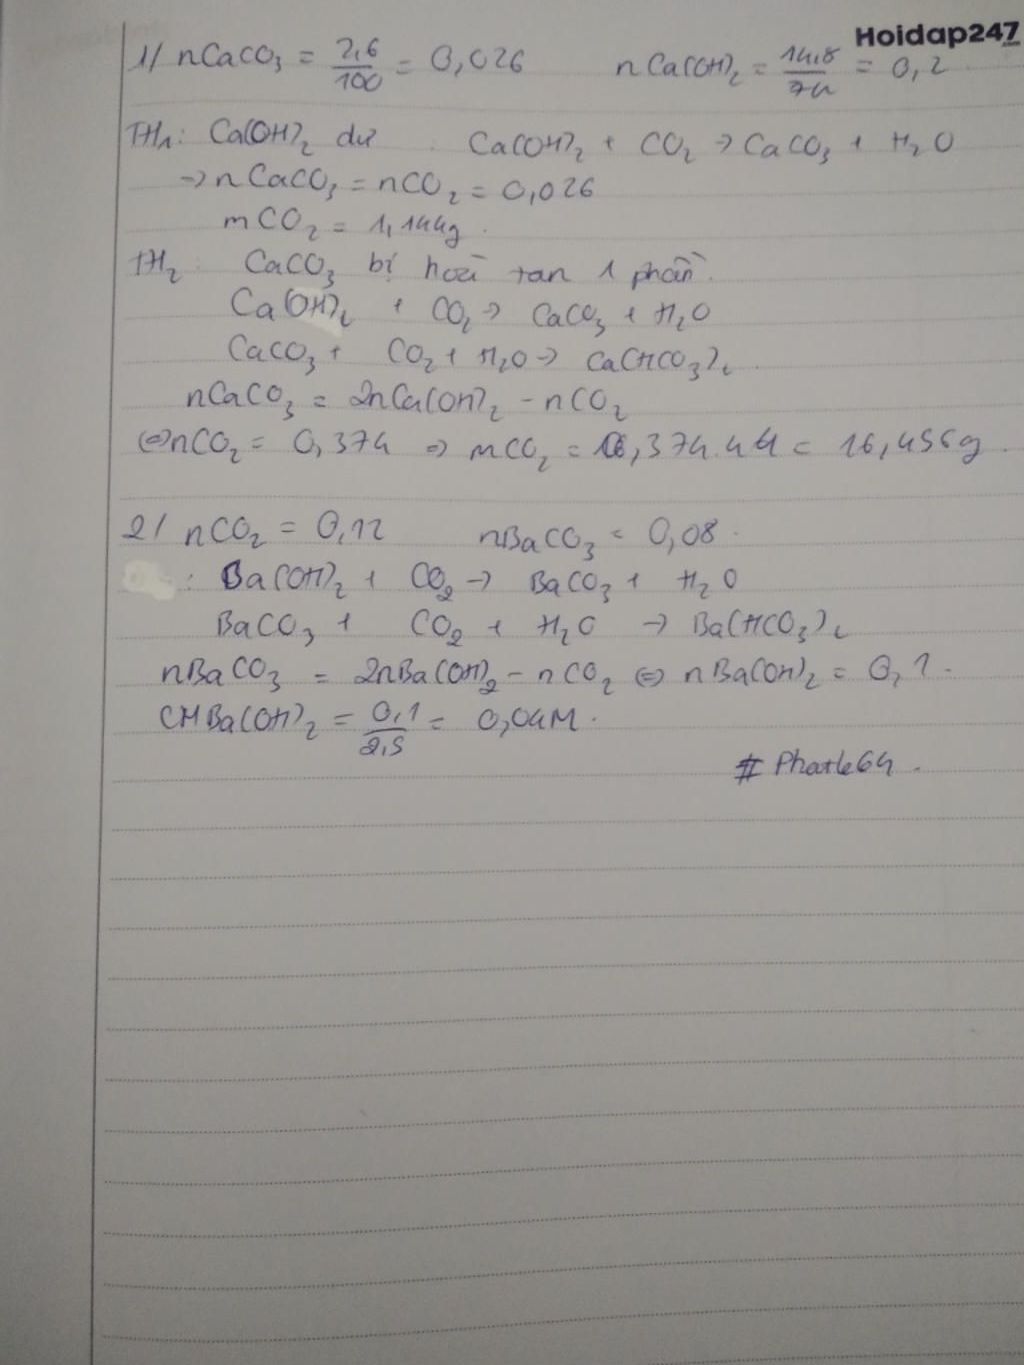 Hoidap247
1/ nCaCO₃ = 2,6/100 = 0,026 nCa(OH)₂ = 14,8/74 = 0,2
TH₁: Ca(OH)₂ dư : Ca(OH)₂ + CO₂ → CaCO₃ + H₂O
→ nCaCO₃ = nCO₂ = 0,026
mCO₂ = 1,144g.
TH₂: CaCO₃ bị hoà tan 1 phần.
Ca(OH)₂ + CO₂ → CaCO₃ + H₂O
CaCO₃ + CO₂ + H₂O → Ca(HCO₃)₂.
nCaCO₃ = 2nCa(OH)₂ - nCO₂
⇔ nCO₂ = 0,374 ⇒ mCO₂ = 0,374.44 = 16,456g.
2/ nCO₂ = 0,12 nBaCO₃ = 0,08.
: Ba(OH)₂ + CO₂ → BaCO₃ + H₂O
BaCO₃ + CO₂ + H₂O → Ba(HCO₃)₂
nBaCO₃ = 2nBa(OH)₂ - nCO₂ ⇔ nBa(OH)₂ = 0,1.
CMBa(OH)₂ = 0,1/2,5 = 0,04M.
# Phatle64.